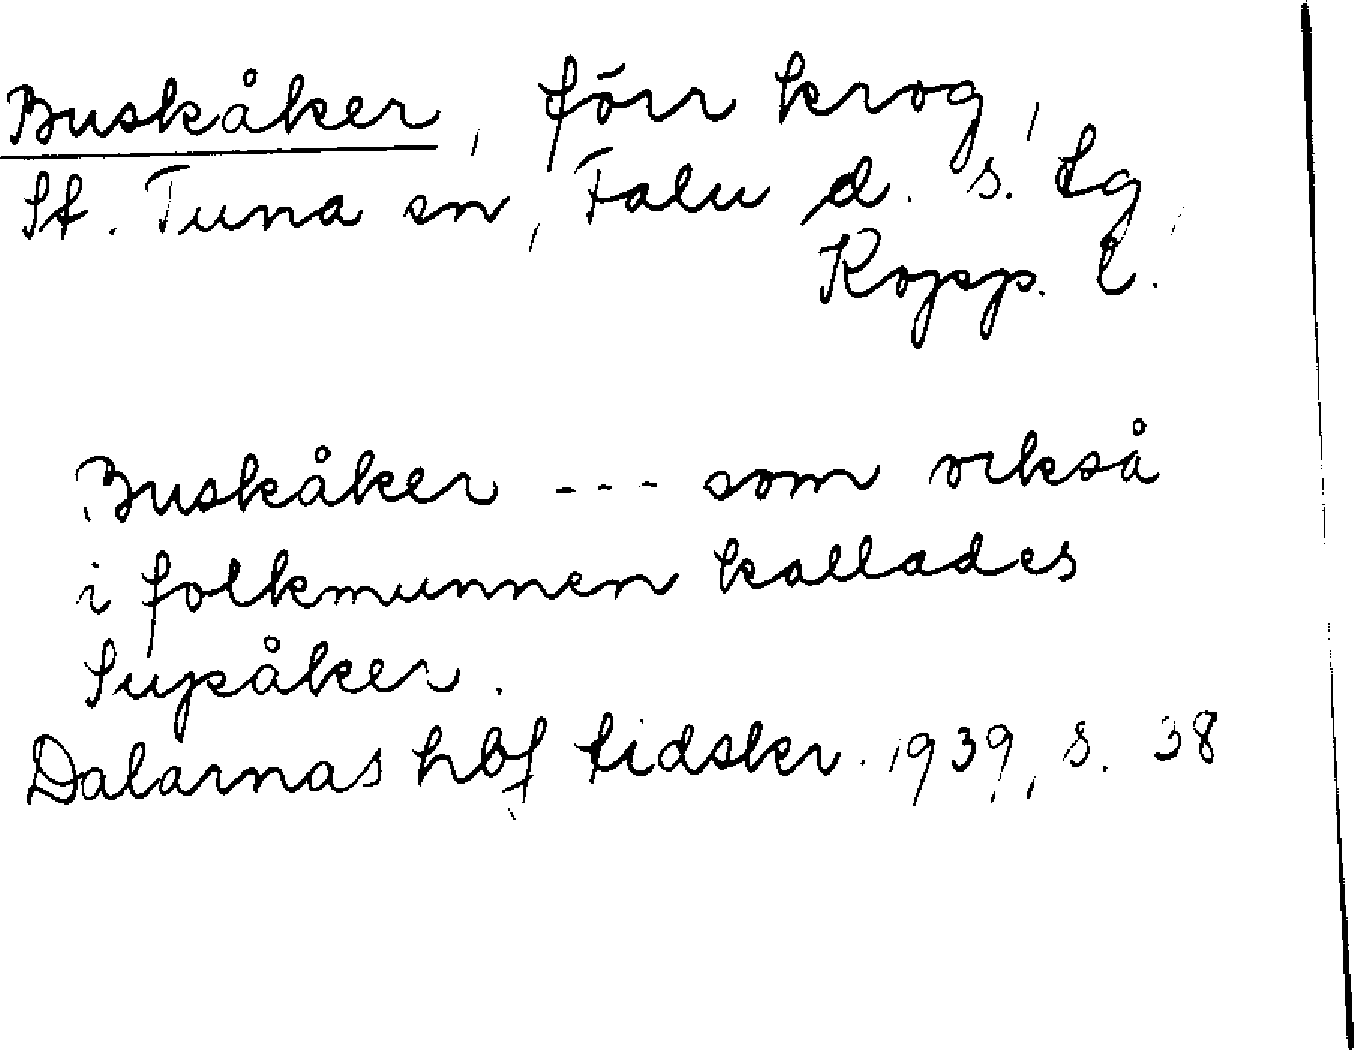 Buskåker, förr krog,
St. Tuna sn, Falu d. s. tg,
Kopp. l.
Buskåker --- som också
i folkmunnen kallades
Supåker.
Dalarnas hbf tidskr. 1939, s. 38